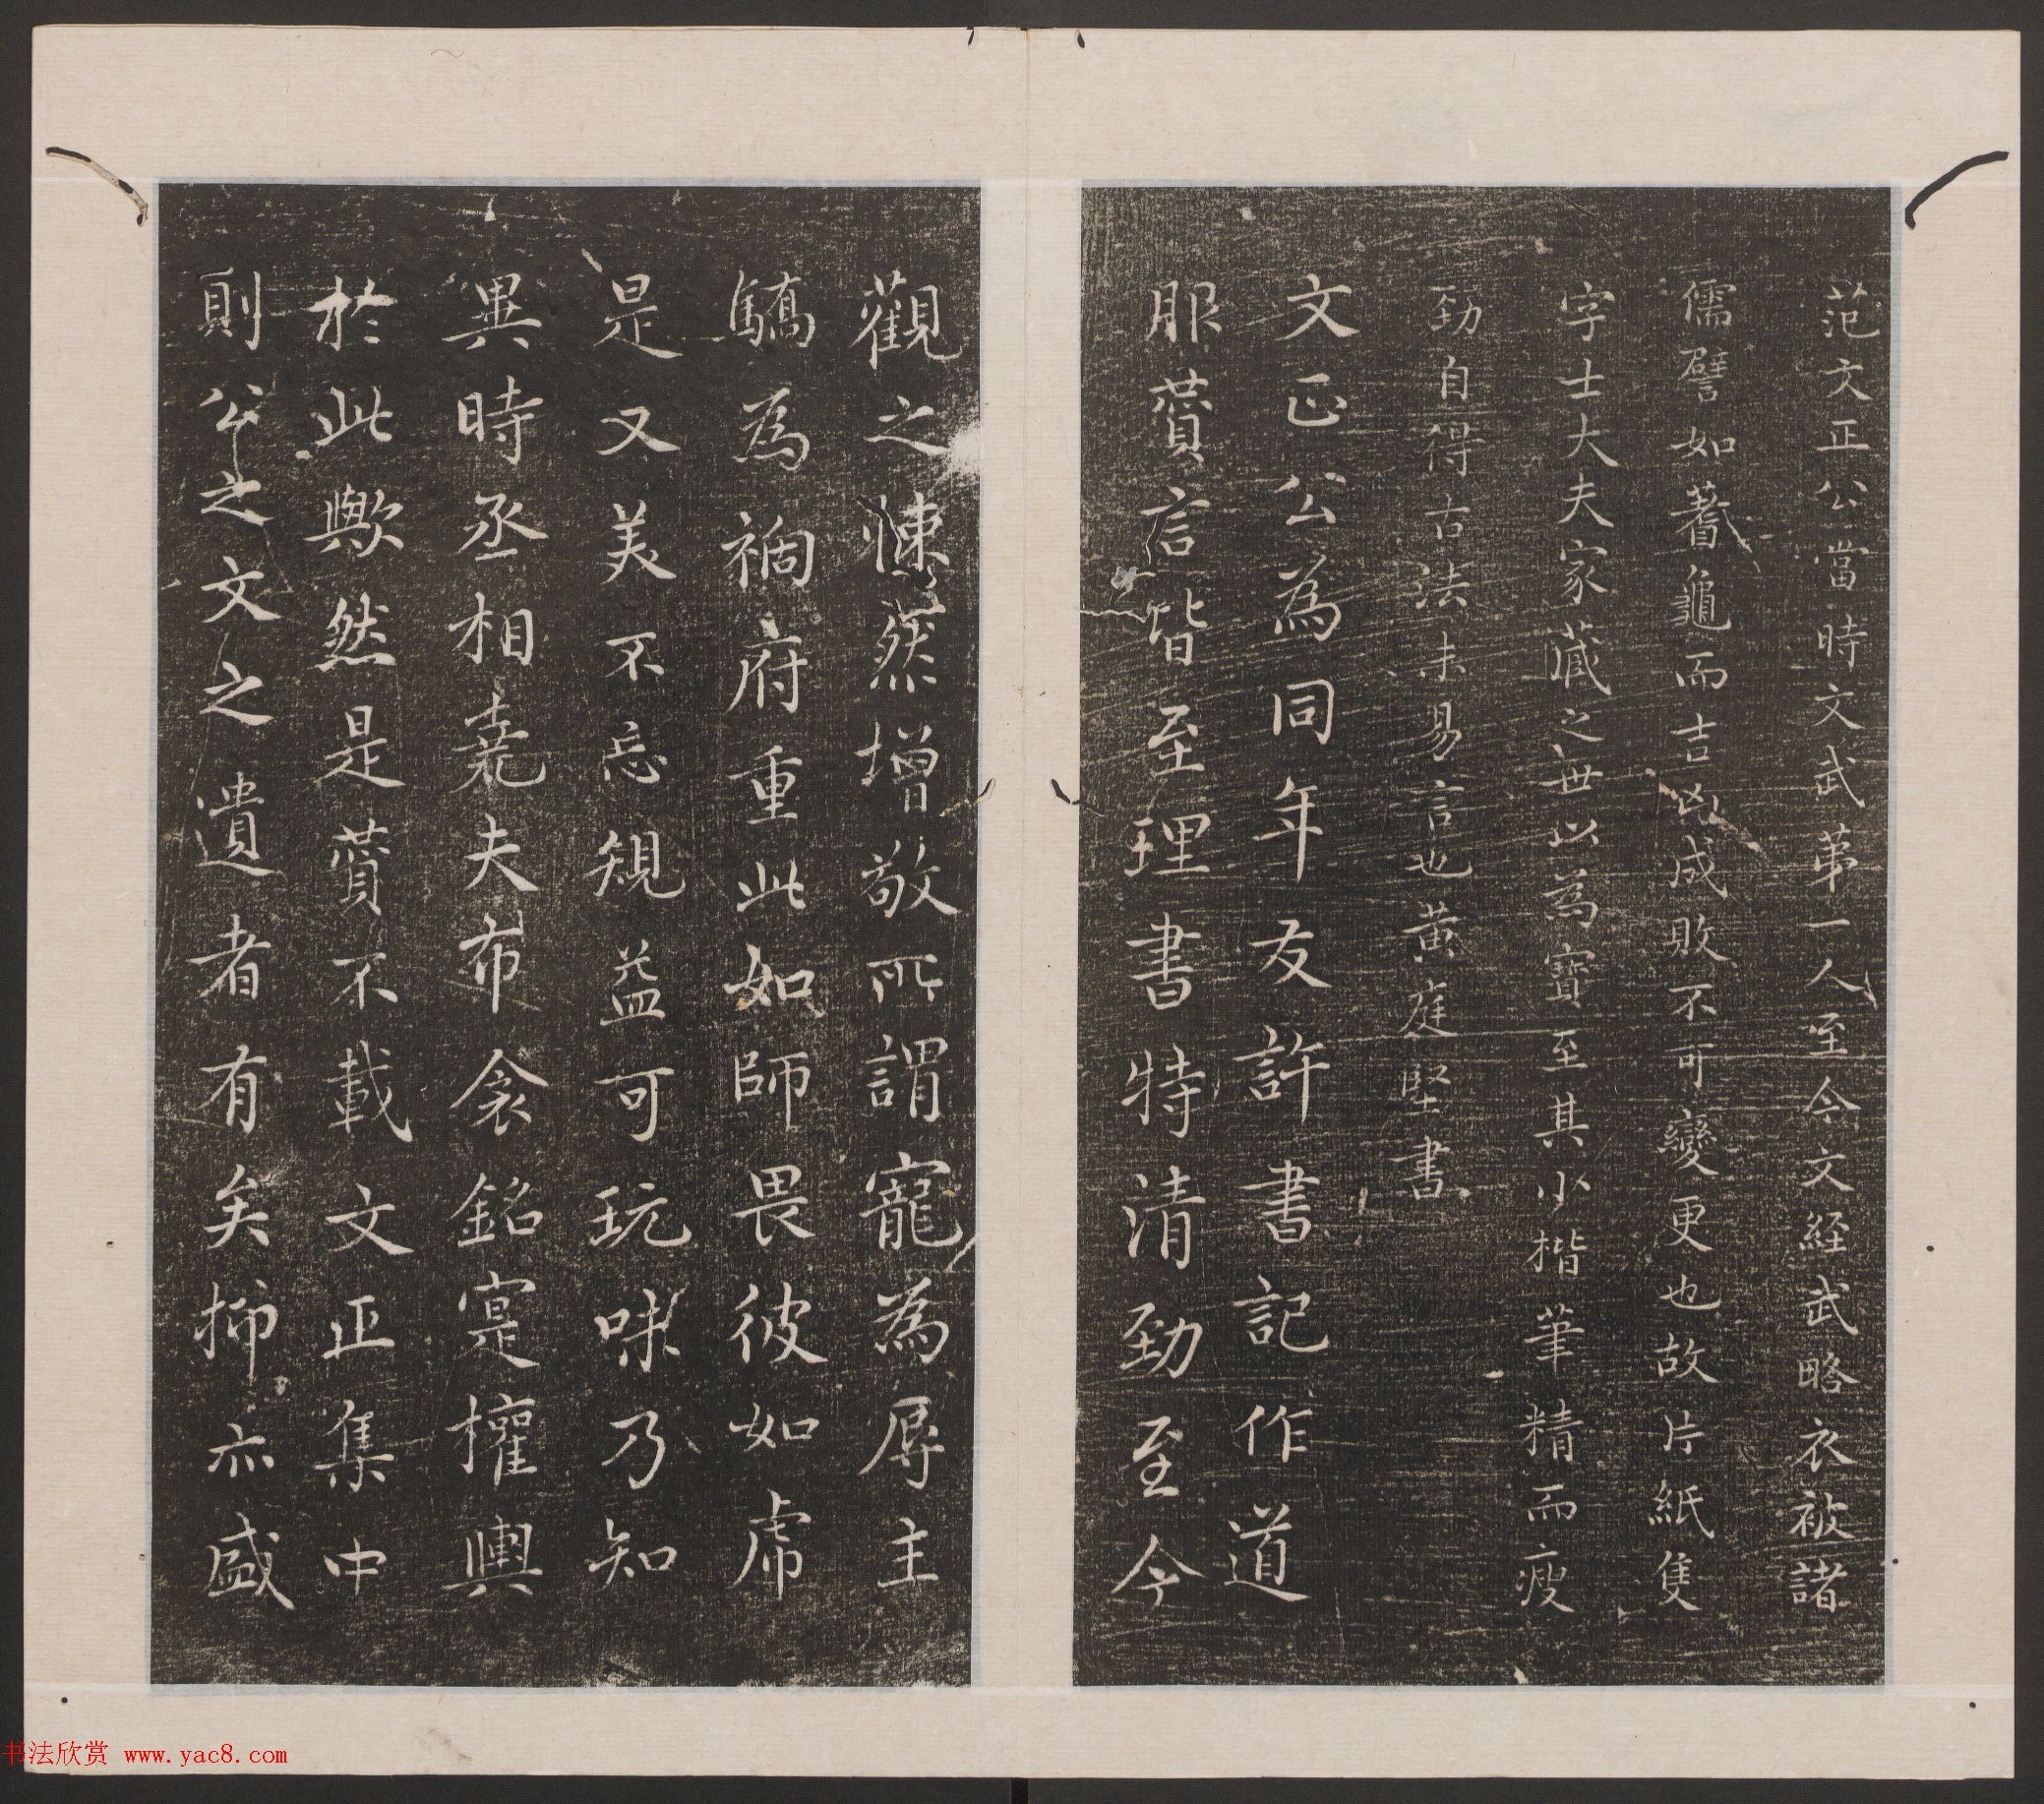 范文正公當時文武第一人至今文経武略衣被諸
儒譬如蓍龜而吉凶成敗不可變更也故片紙隻
字士大夫家藏之世以為寶至其小楷筆精而瘦
勁自得古法未易言也黄庭堅書
文正公為同年友許書記作道
服賛言皆至理書特清勁至今
觀之悚然增敬所謂寵為辱主
驕為禍府重此如師畏彼如虎
是又美不忘規益可玩味乃知
異時丞相堯夫布衾銘寔權輿
於此歟然是賛不載文正集中
則公之文之遺者有矣抑亦盛
书法欣赏 www.yac8.com